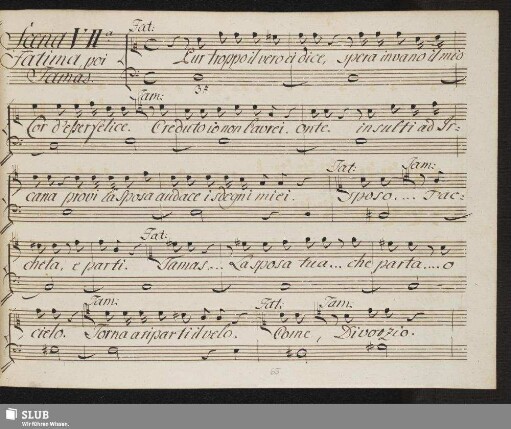 Scena VII.a
Fatima, poi
Tamas.
Fat:
Pur troppo il vero ei dice, Spera invano il mio
Tam:
Cor d'esser felice. Creduto io non l'avrei. onte. insulti ad Ir-
cana provi la Sposa audace i sdegni miei.
Fat:
Sposo....
Tam:
Tac-
cheta, e parti.
Fat:
Tamas... La sposa tua... che parta,.... o
cielo.
Tam:
Torna a riparti il velo.
Fat:
Come,
Tam:
Divorzio.
SLUB
Wir führen Wissen.